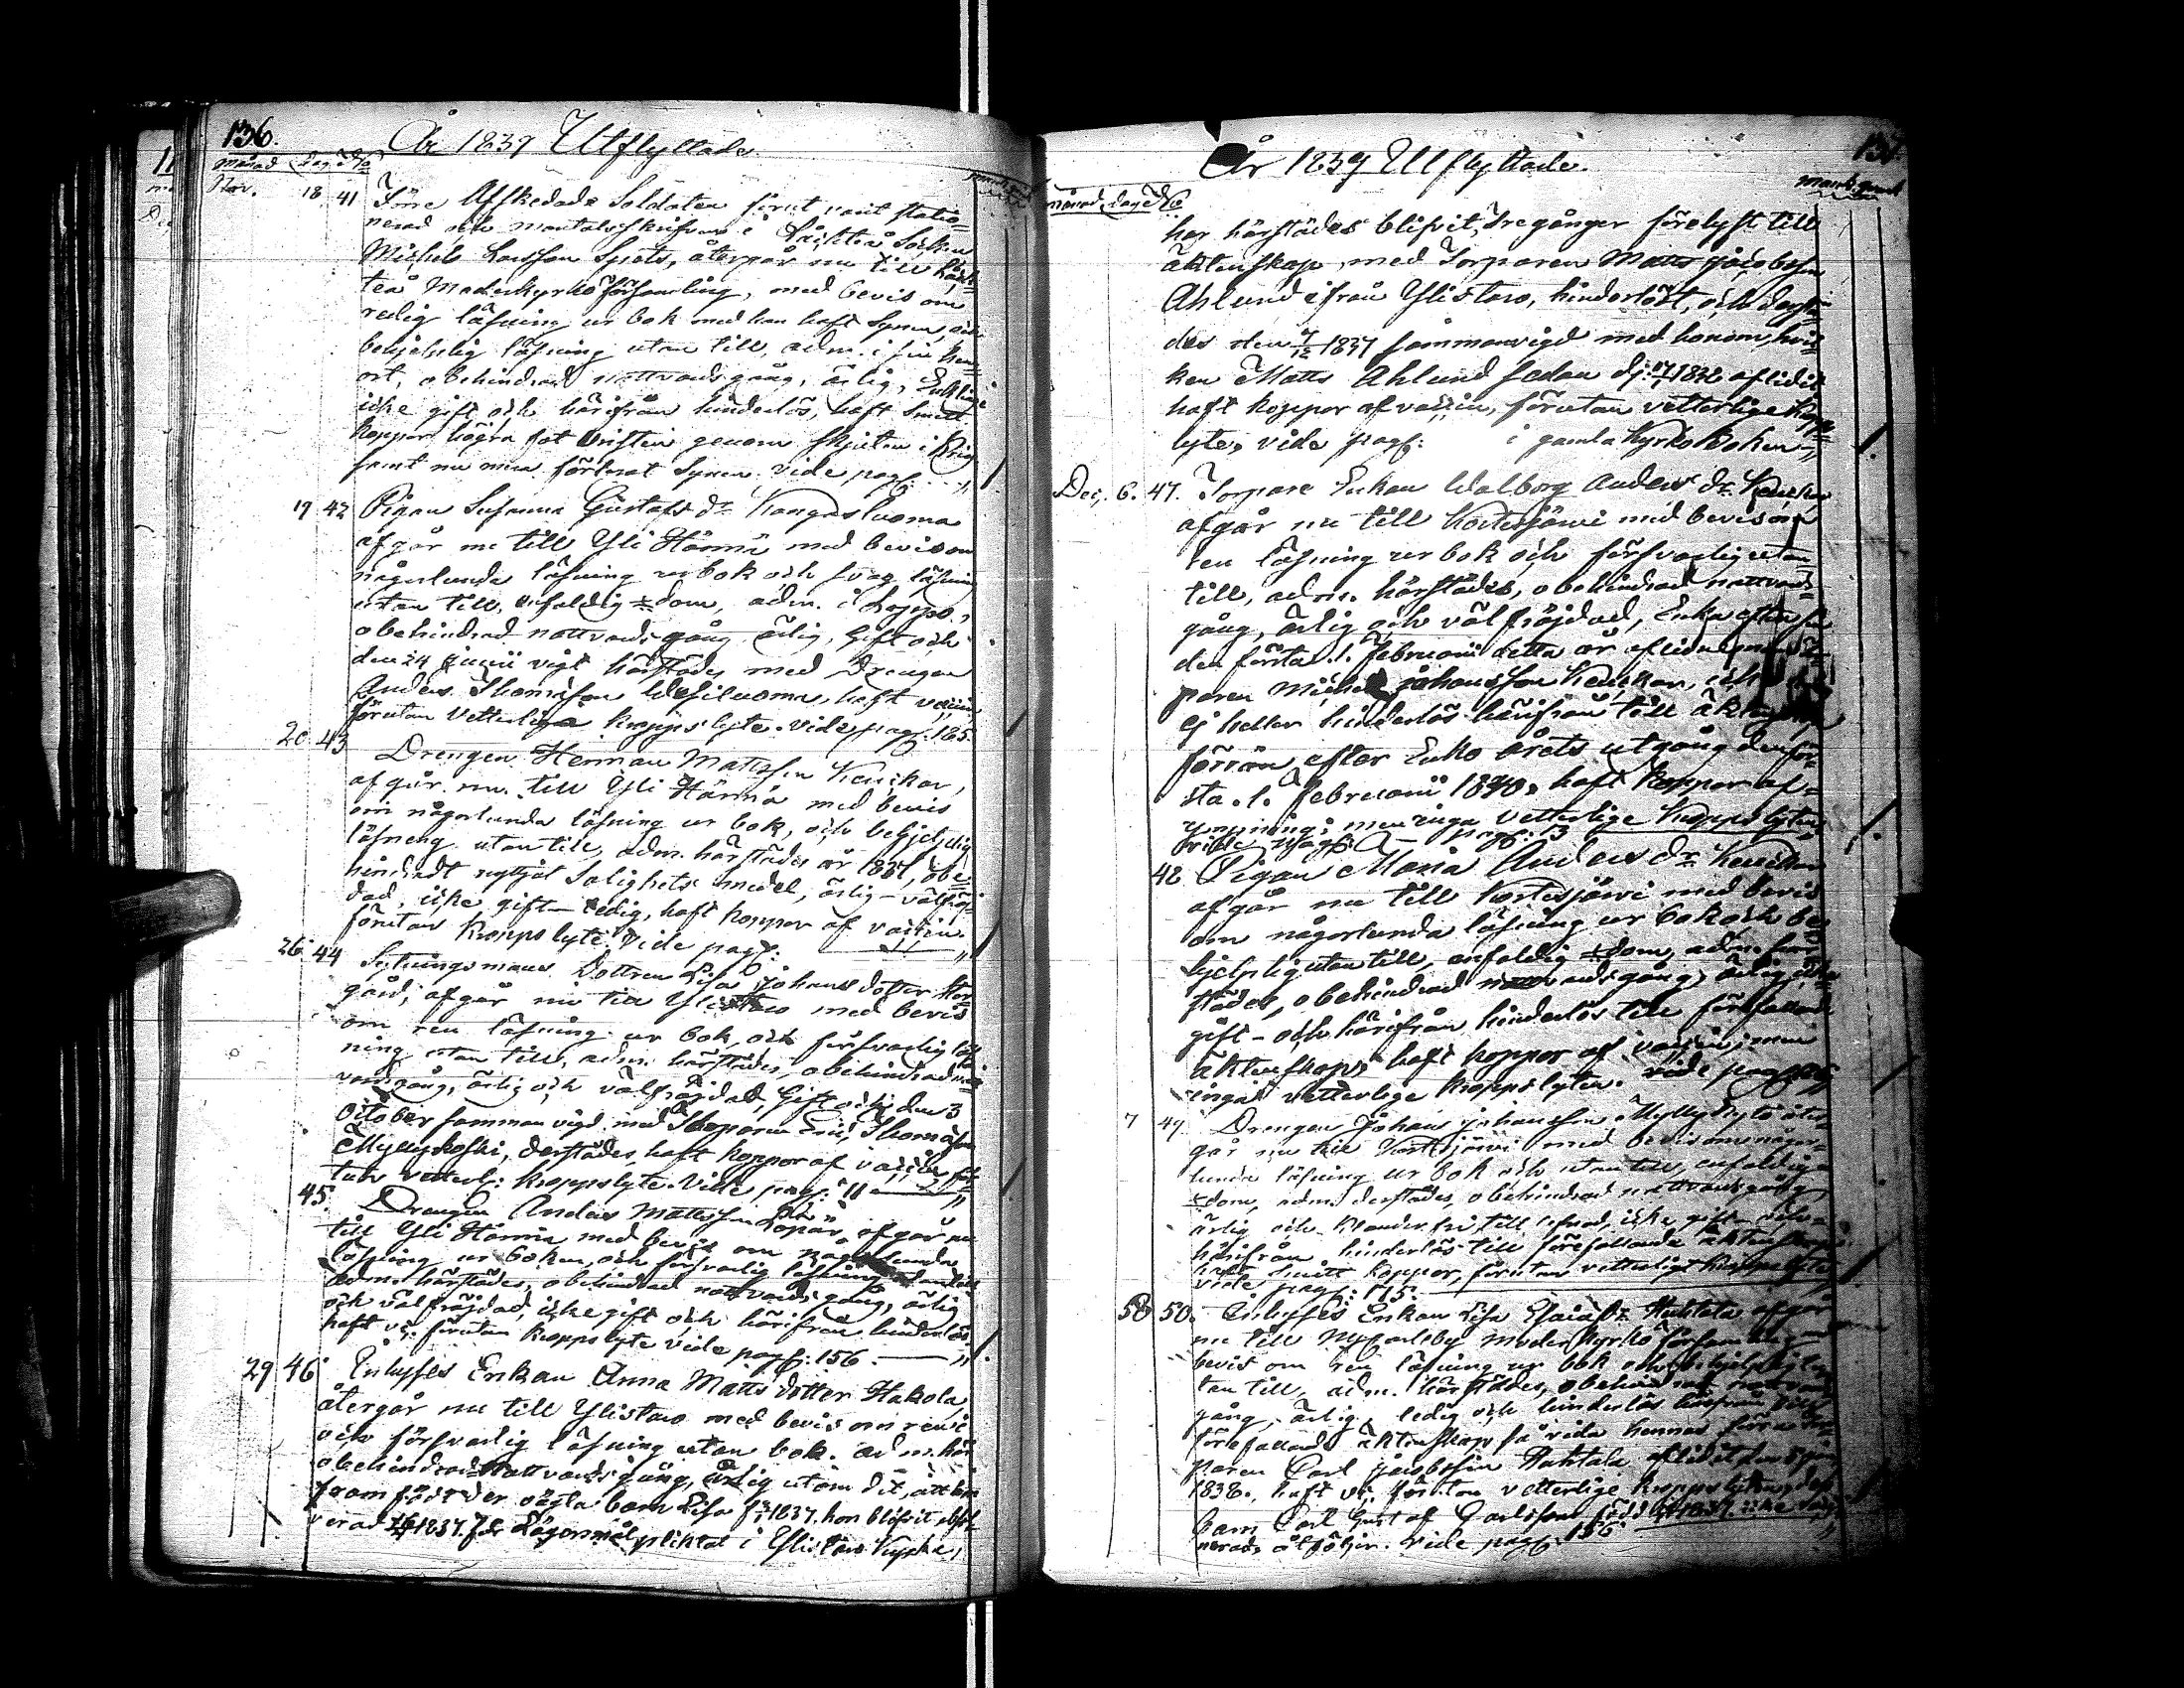 136.
År 1839 Utflyttade.
månad dag No
Nov. 18. 41 Förre Afskedade Soldaten förut varit statio=
nerad och mantalsskrifven i Socken
Michel Larsson Spets, återgår nu till
teå Moderkyrko församling, med bevis om
redig läsning ur bok med han haft Synen, och
behjelplig läsning utan till, adm. i sin hem=
ort, obehindrad nattvardsgång, ärlig,
icke gift och härifrån hinderlös, haft Smitt
koppor högra fot vristen genom skjuten i Krig
samt nu mera förlorat Synen. vide pag:
19 42 Pigan Susanna Gustafs dr Kangasluoma
afgår nu till Yli Härmä med bevis om
någorlunda läsning ur bok och svag läsning
utan till, enfaldig =dom, adm. i Lappo,
obehindrad nattvardsgång ärlig, Gift och
den 24 Junii vigt härstädes med Drengen
Anders Thomasson haft vaccin
förutan Vetterliga kropps lyte. vide pag: 165
20 43 Drengen Herman Mattsson Keuckar,
afgår nu till Yli Härmä med bevis
om någorlunda läsning ur bok, och behjelplig
läsning utan till, adm. härstädes år 1837, obe=
hindradt nyttjat Salighets medel, ärlig - välfräj=
dad, icke gift - ledig, haft koppor af vaccin
förutan Kropps lyte. Vide pag:
26 44 Sytningsmans Dottren Lisa Johans dotter Stor=
gård, afgår nu till Ylistaro med bevis
om ren läsning ur bok, och försvarlig läs=
ning utan till, adm. härstädes, obehindrad natt=
vardsgång, ärlig och välfräjdad, Gift och den 3
October samman vigd med Torparen Eric Thomasson
Myllykoski, derstädes, haft koppor af vaccin, för=
utan vetterl: kroppslyte. Vide pag: 11
45. Drengen Anders Mattsson afgår nu
till Yli Härmä med bevis om någorlunda
läsning ur boken, och försvarlig läsning utantill
adm. härstädes, obehindrad nattvardsgång, ärlig
och välfräjdad, icke gift och härifrån hinderlös
haft v: förutan kroppslyte vide pag: 156.
29 46 Inhyses Enkan Anna Matts dotter Hakola,
återgår nu till Ylistaro med bevis om ren i
och försvarlig läsning utan bok. adm. här
obehindrad Nattvardsgång, ärlig utom det, att hon
framfödt der oägta barn Lisa f 1837. hon blifvit absol=
verad 1837. för Lägersmål pliktat i Ylistaro Kyrka,
År 1839 Utflyttade.
månad dag No
har härstädes blifvit, tre gånger förelyst till
äktenskap, med Torparen Matts Jacobsson
Ahlund ifrån Ylistaro, hinderlöst, och derstä=
des den 1837 sammanvigd med honom, hvil=
ken Matts Ahlund sedan dj: 1838 aflidit
haft koppor af vaccin, förutan vetterlige kropps=
lyte, vide pag: i gamla Kyrko Boken
Dec. 6. 47. Torpare Enkan Walborg Anders dr Keuckar
afgår nu till Kortesjärvi med bevis om
ren läsning ur bok och försvarlig utan=
till, adm. härstädes, obehindrad nattvards=
gång, ärlig och välfräjdad, Enka efter sin
den första 1. Februarii detta år aflidne man Tor=
paren Michel Johansson Keuckar,
ej heller hinderlös härifrån till äktenskap
förrän efter Enko årets utgång den för=
sta 1. Februarii 1840, haft koppor af=
ympning men inga Vetterlige Kroppslyten
vide pag: 13
48 Pigan Maria Anders dr Keuckar
afgår nu till Kortesjärvi med bevis
om någorlunda läsning ur bok och be=
hjelplig utan till, enfaldig =dom, adm. här=
städes, obehindrad nattvardsgång, ärlig, icke
gift - och härifrån hinderlös till förefallande
äktenskap, haft koppor af vaccin, men
inga vetterlige kroppslyten. vide pag:
7 49 Drengen Johans Johansson Myllykylä åter=
går nu till Kortesjärvi med bevis om någor=
lunda läsning ur bok och utan till, enfaldig
=dom, adm. derstädes, obehindrad nattvardsgång,
ärlig och klanderfri till lefnad, icke gift - och
härifrån hinderlös till förefallande äktenskap,
haft Smitt koppor, förutan vetterligt kroppslyte
vide pag: 115.
50. Inhyses Enkan Lisa Esaiæ dr Huhtala afgår
nu till Nycarleby moder Kyrko församling med
bevis om ren läsning ur bok och behjelplig u=
tan till, adm. härstädes, obehindrad nattvards
gång, ärlig, ledig och hinderlös härifrån till
förefallande äktenskap så vida hennes förra
paren Carl Jacobsson Huhtala aflidit den
1838., haft v: förutan vetterlige kroppslyten, dess
barn Carl Gustaf Carlsson född 1837. icke vacci=
nerad, åtföljer. vide pag: 156